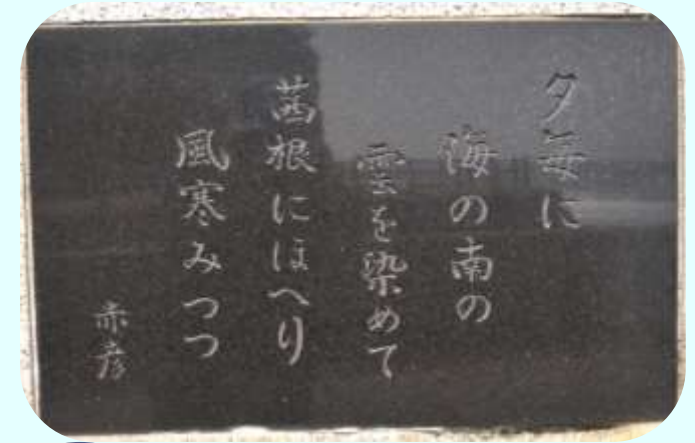 夕毎に
海の南の
雲を染めて
茜根にほへり
風寒みつつ
赤彦